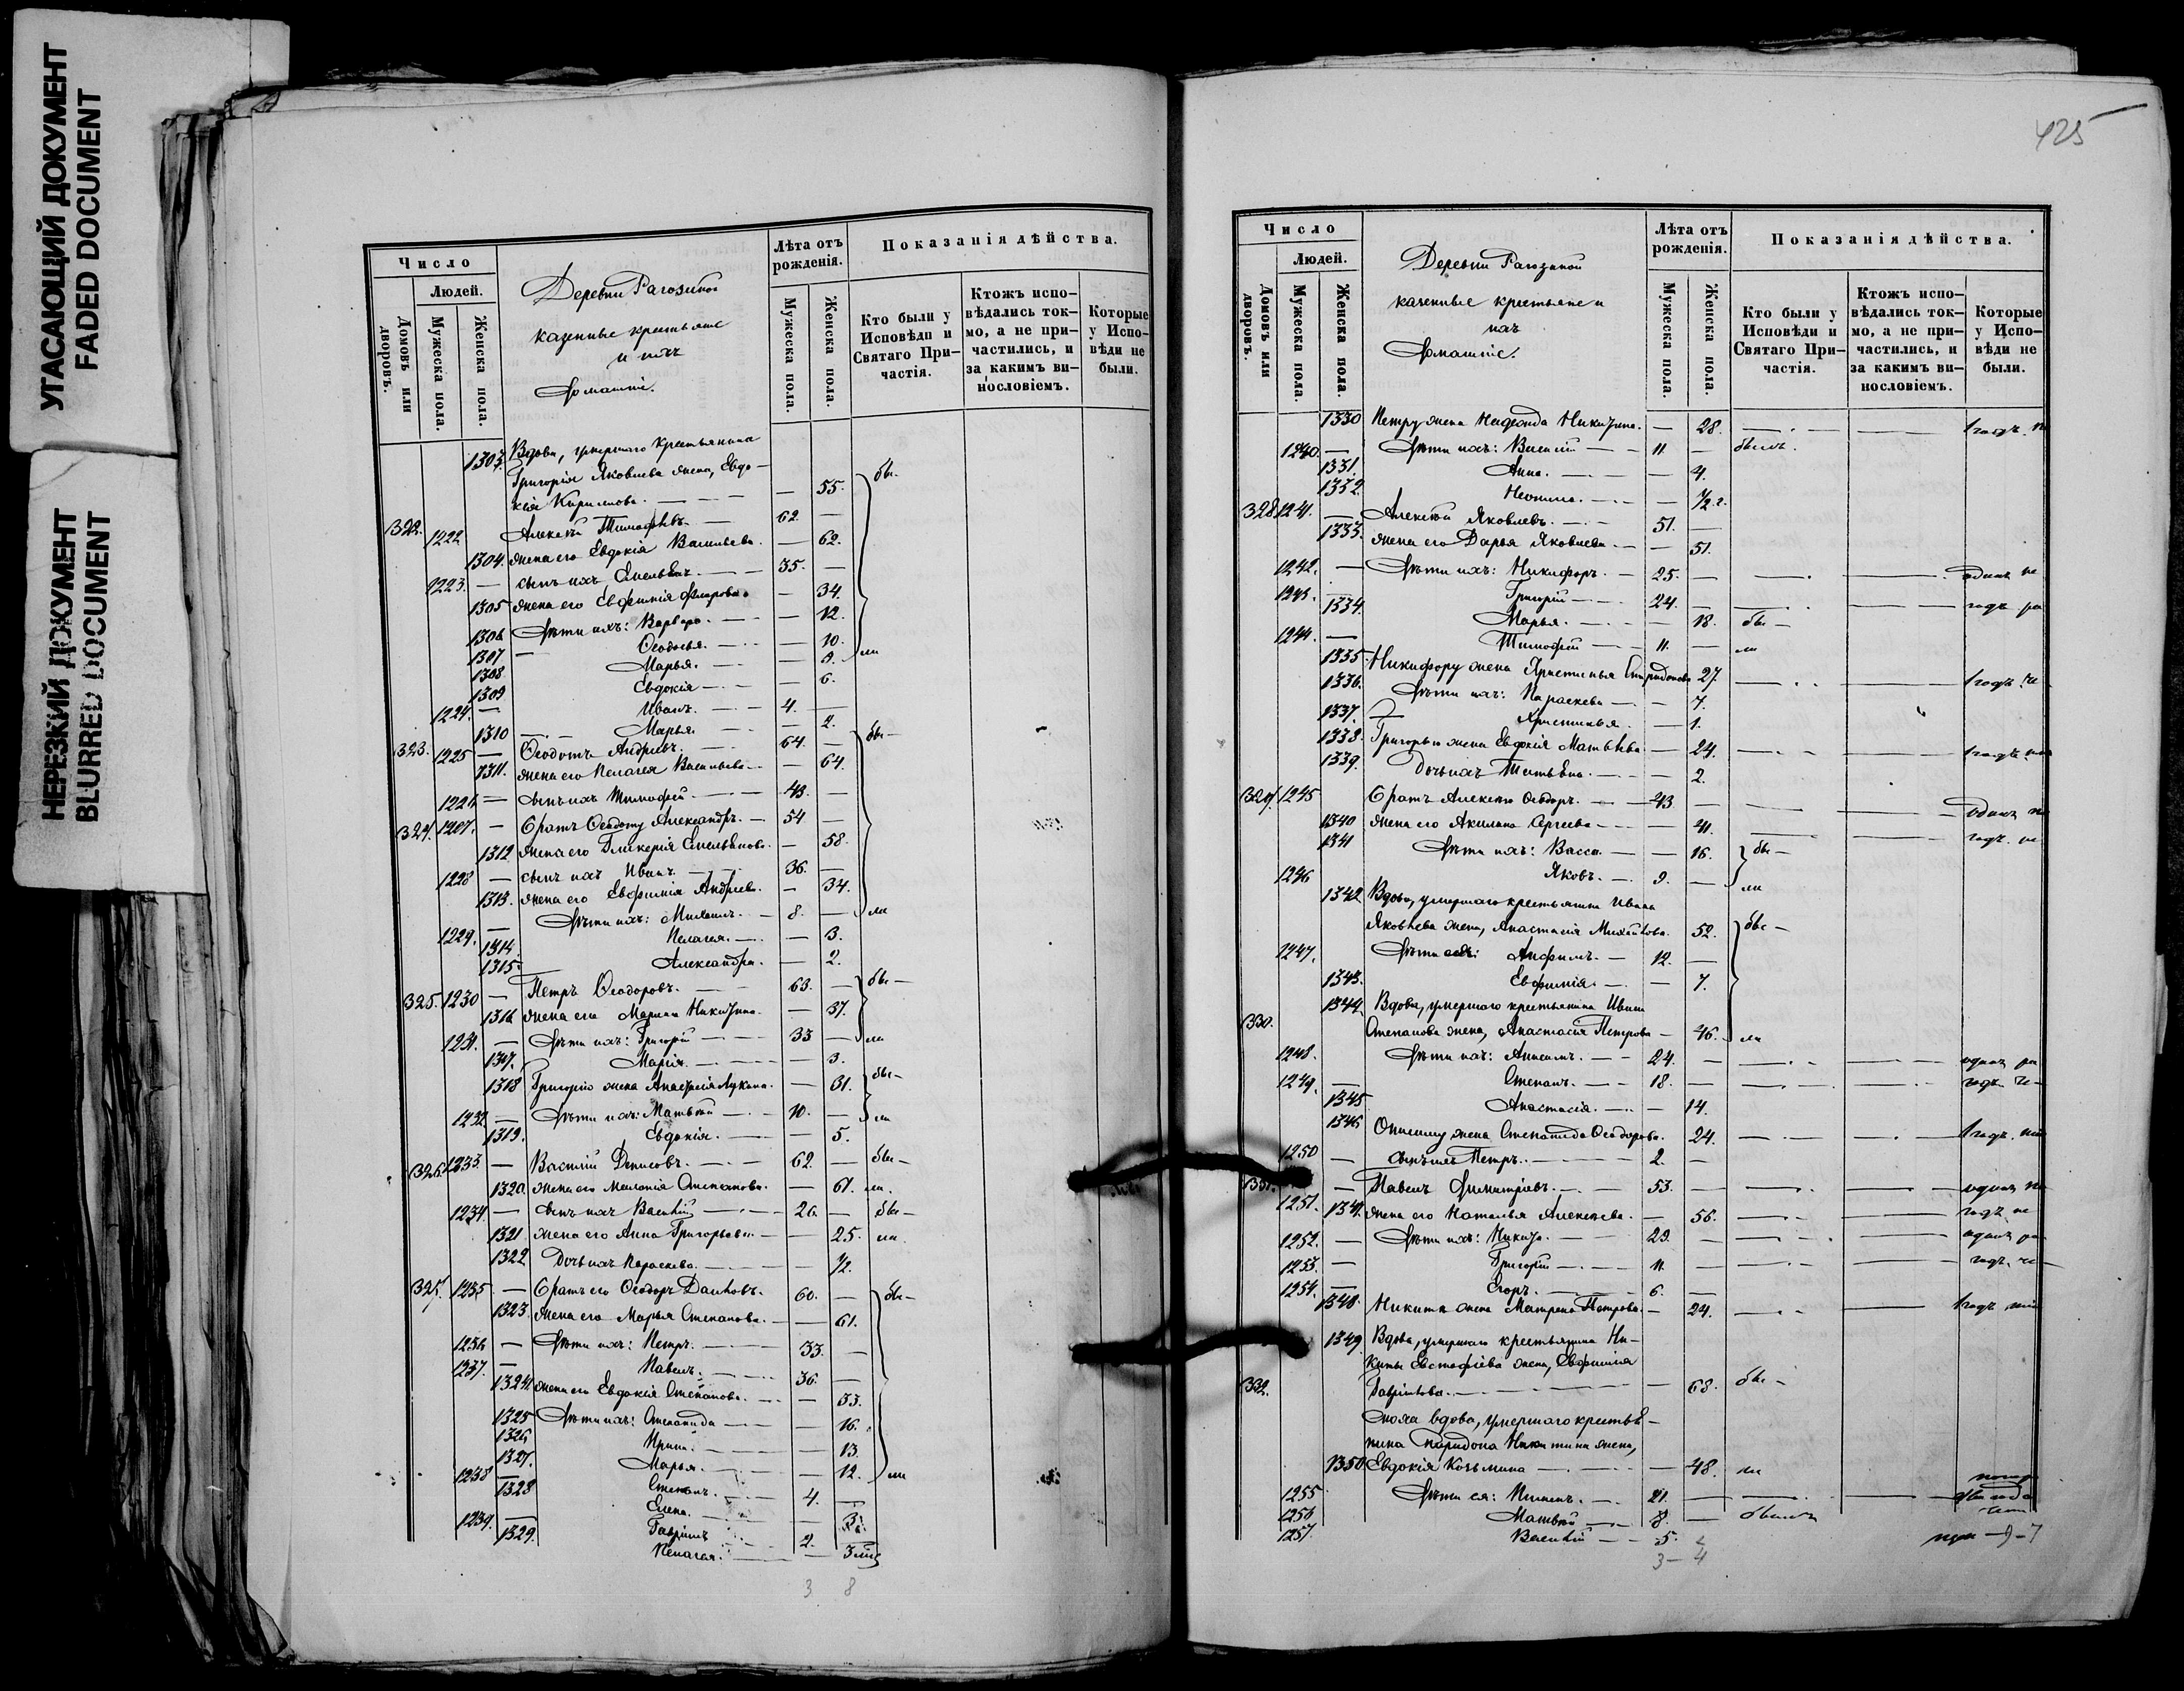 УГАСАЮЩИЙ ДОКУМЕНТ
FADED DOCUMENT
НЕРЕЗКИЙ ДОКУМЕНТ
BLURRED DOCUMENT
Число
Людей.
Домовъ или дворовъ.
Мужеска пола.
Женска пола.
Деревни Рагозиной
казенные крестьяне
и ихъ
домашніе.
Лѣта отъ рожденія.
Мужеска пола.
Женска пола.
Показанія дѣйства.
Кто были у Исповѣди и Святаго При-частія.
Ктожъ испо-вѣдались ток-мо, а не при-частились, и за какимъ ви-нословіемъ.
Которые у Испо-вѣди не были.
1303. Вдова, умершаго крестьянина
Григорія Яковлева жена, Евдо-
кія Кирилова. — 55. бы-
322. 1222 Алексѣй Тимофѣевъ. — 62. —
1304. жена его Евдокія Васильева. — 62.
1223. — сынъ ихъ Емельянъ. — 35. —
1305 жена его Евфимія — 34.
1306 дѣти ихъ: Варвара. — 12.
1307 — Ѳеодосья. — 10.
1308 Марья. — 8. ли
1309 Евдокія — 6.
1224. — Иванъ. — 4. —
1310 — Марья. — 2.
323. 1225 — Ѳеодотъ Андреевъ. — 64. — бы-
1311. жена его Пелагея Васильева — 64.
— сынъ ихъ Тимофей. — 43. —
324. — братъ Ѳеодоту Александръ. — 54 —
1312 жена его Гликерія Емельянова. — 58.
1228 — сынъ ихъ Иванъ. — 36. —
1313. жена его Евфимія Андреева. — 34.
1229. — дѣти ихъ: Михаилъ. — 8. — ли
1314. Пелагея. — 3.
1315. Александра. — 2.
325. 1230 — Петръ Ѳеодоровъ. — 63. — бы-
1316 жена его Никитина. — 37.
1231. — дѣти ихъ: Григорій — 33 — ли
1317. Марія. — 3.
1318 Григорію жена — 31. бы-
1232. — дѣти ихъ: Матвѣй — 10. — ли
1319. Евдокія. — 5.
326. 1233. — Василій Денисовъ. — 62. — бы-
1320. жена его Меланія Степанова. — 61. ли.
1234. — сынъ ихъ — 26. — бы-
1321 жена его Анна Григорьева — 25. ли.
1322 дочь ихъ Параскева. — 1/2.
327. 1235 — братъ его Ѳеодоръ — 60. — бы-
1323. жена его Марья Степанова. — 61.
1236 — дѣти ихъ: Петръ. — 33. —
1237. — Павелъ. — 36. —
1324. жена его Евдокія Степанова. — 33.
1325 дѣти ихъ: Степанида — 16.
1326 Ирина. — 13.
1327. Марья. — 12. ли
1238 — Степанъ. — 4. —
1328 Елена. — 3.
1239. — Гавріилъ — 2. —
1329. Пелагея. —
3 8
425
Число
Людей.
Домовъ или дворовъ.
Мужеска пола.
Женска пола.
Деревни Рагозиной
казенные крестьяне и
ихъ
домашніе.
Лѣта отъ рожденія.
Мужеска пола.
Женска пола.
Показанія дѣйства.
Кто были у Исповѣди и Святаго При-частія.
Ктожъ испо-вѣдались ток-мо, а не при-частились, и за какимъ ви-нословіемъ.
Которые у Испо-вѣди не были.
1330 Петру жена Никитина. — 28. — 1 годъ
1240. — дѣти ихъ: Василій — 11 — былъ.
1331. Анна. — 4.
1332. Неонила. — 1/2 г.
328. 1241. — Алексѣй Яковлевъ. — 51. —
1333. жена его Дарья Яковлева — 51.
1242. — дѣти ихъ: Никифоръ. — 25. —
1243. — Григорій — 24. — годъ
1334. Марья. — 18. бы-
1244. — Тимофей — 11. — ли
1335. Никифору жена Христинья Спиридонова 27. — 1 годъ
1336. дѣти ихъ: Параскева — 7.
1337. Христинья. — 1.
1338. Григорью жена Евдокія Матвѣева — 24. — 1 годъ
1339. дочь ихъ — 2.
329. 1245 братъ Алексѣю Ѳеодоръ. — 43 —
1340 жена его Акилина Сергеева — 41. — годъ
1341 дѣти ихъ: Васса. — 16. бы-
1246 Яковъ. — 9. — ли
1342 Вдова, умершаго крестьянина Ивана
Яковлева жена, Анастасія Михайлова. 52. бы-
1247. дѣти ея: Анфимъ. — 12. —
1343. Евфимія. — 7.
1344. Вдова, умершаго крестьянина Ивана
330. Степанова жена, Анастасія Петрова — 46. ли
1248. дѣти ихъ: — 24. —
1249. — Степанъ. — 18. — годъ
1345 Анастасія. — 14.
1346 жена Степанида Ѳеодорова. 24. — 1 годъ
1250 — сынъ ихъ Петръ. — 2. —
331. — Павелъ Димитріевъ. — 53. —
1251. 1347. жена его Наталья Алексѣева. — 56. — годъ
1252. — дѣти ихъ: Никита. — 29. —
1253. — Григорій — 11. — годъ
1254. — Егоръ. — 6. —
1348. Никитѣ жена Матрена Петрова. — 24. — 1 годъ
1349. Вдова, умершаго крестьянина Ни-
киты Евстафіева жена, Евфимія
332. Гаврилова. — 68. бы-
Сноха вдова, умершаго крестья-
нина Никитина жена,
1350 Евдокія Козьмина — 48. ли
1255 дѣти ея: — 21. —
1256 Матвѣй — 8. — былъ
1257. Василій — 5.
3 — 4